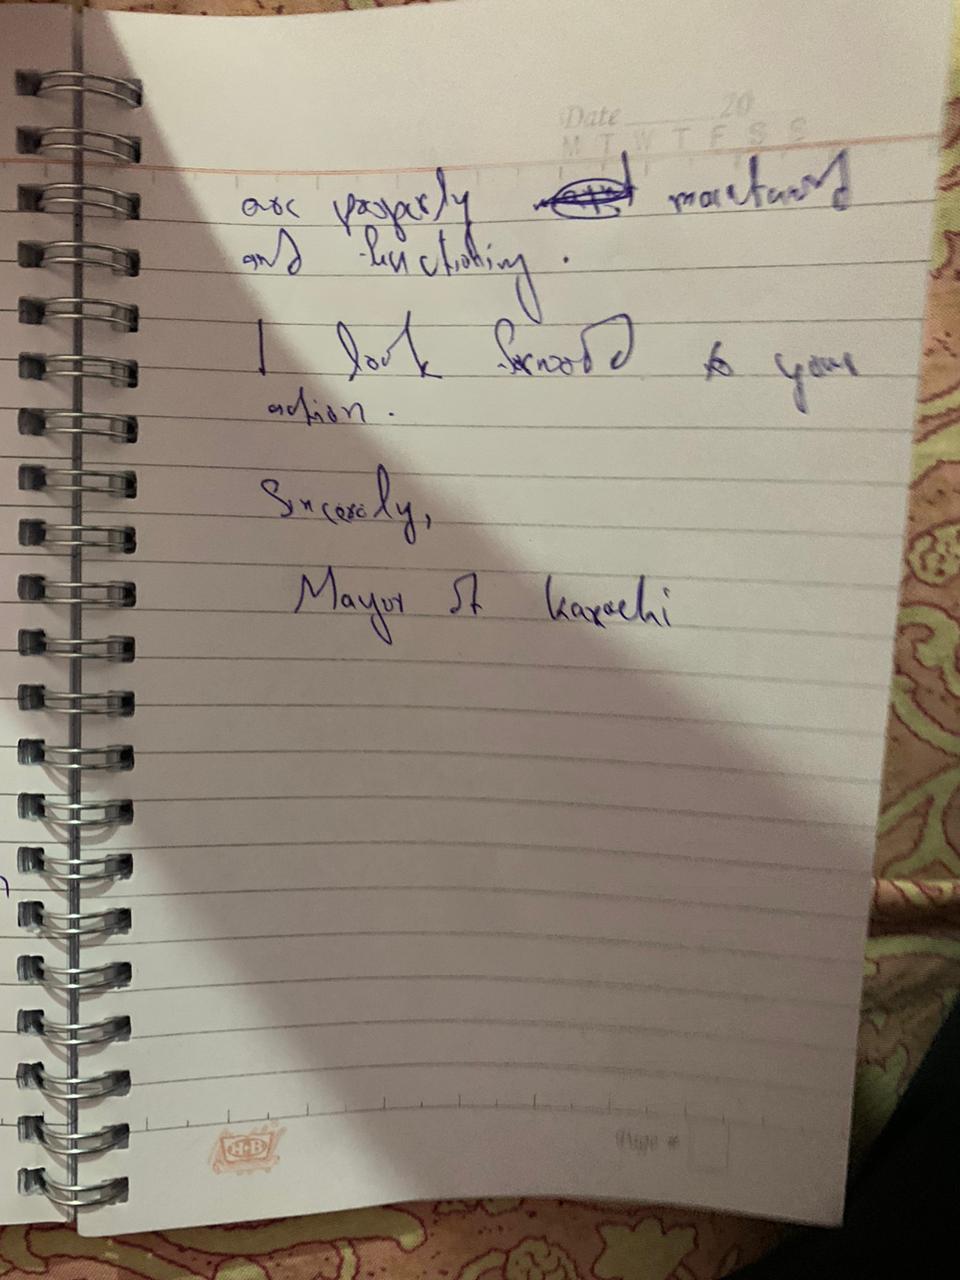 Date 20
M T W T F S S
are properly maintained
and functioning.
I look forward to your
action.
Sincerely,
Mayor of Karachi
H·B
Page #